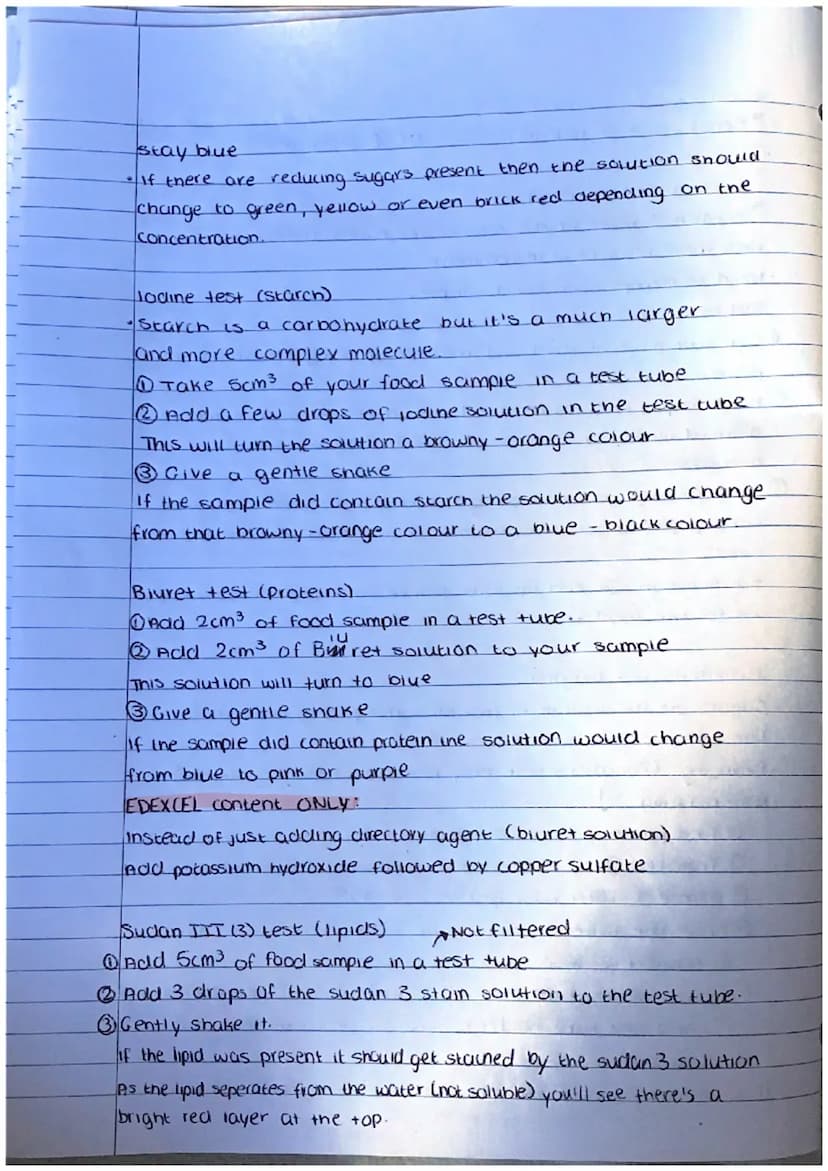 stay blue
• If there are reducing sugars present then the solution should
change to green, yellow or even brick red depending on the
concentration.
Iodine test (starch)
• Starch is a carbohydrate but it's a much larger
and more complex molecule.
① Take 5cm³ of your food sample in a test tube
② Add a few drops of iodine solution in the test tube
This will turn the solution a browny-orange colour
③ Give a gentle shake
If the sample did contain starch the solution would change
from that browny-orange colour to a blue-black colour.
Biuret test (proteins)
① Add 2cm³ of food sample in a test tube.
② Add 2cm³ of Biuret solution to your sample
This solution will turn to blue
③ Give a gentle shake
If the sample did contain protein the solution would change
from blue to pink or purple
EDEXCEL content ONLY:
Instead of just adding directory agent (biuret solution)
Add potassium hydroxide followed by copper sulfate
Sudan III (3) test (lipids) ↗Not filtered
① Add 5cm³ of food sample in a test tube
② Add 3 drops of the sudan 3 stain solution to the test tube.
③ Gently shake it.
If the lipid was present it should get stained by the sudan 3 solution
As the lipid seperates from the water (not soluble) you'll see there's a
bright red layer at the top.